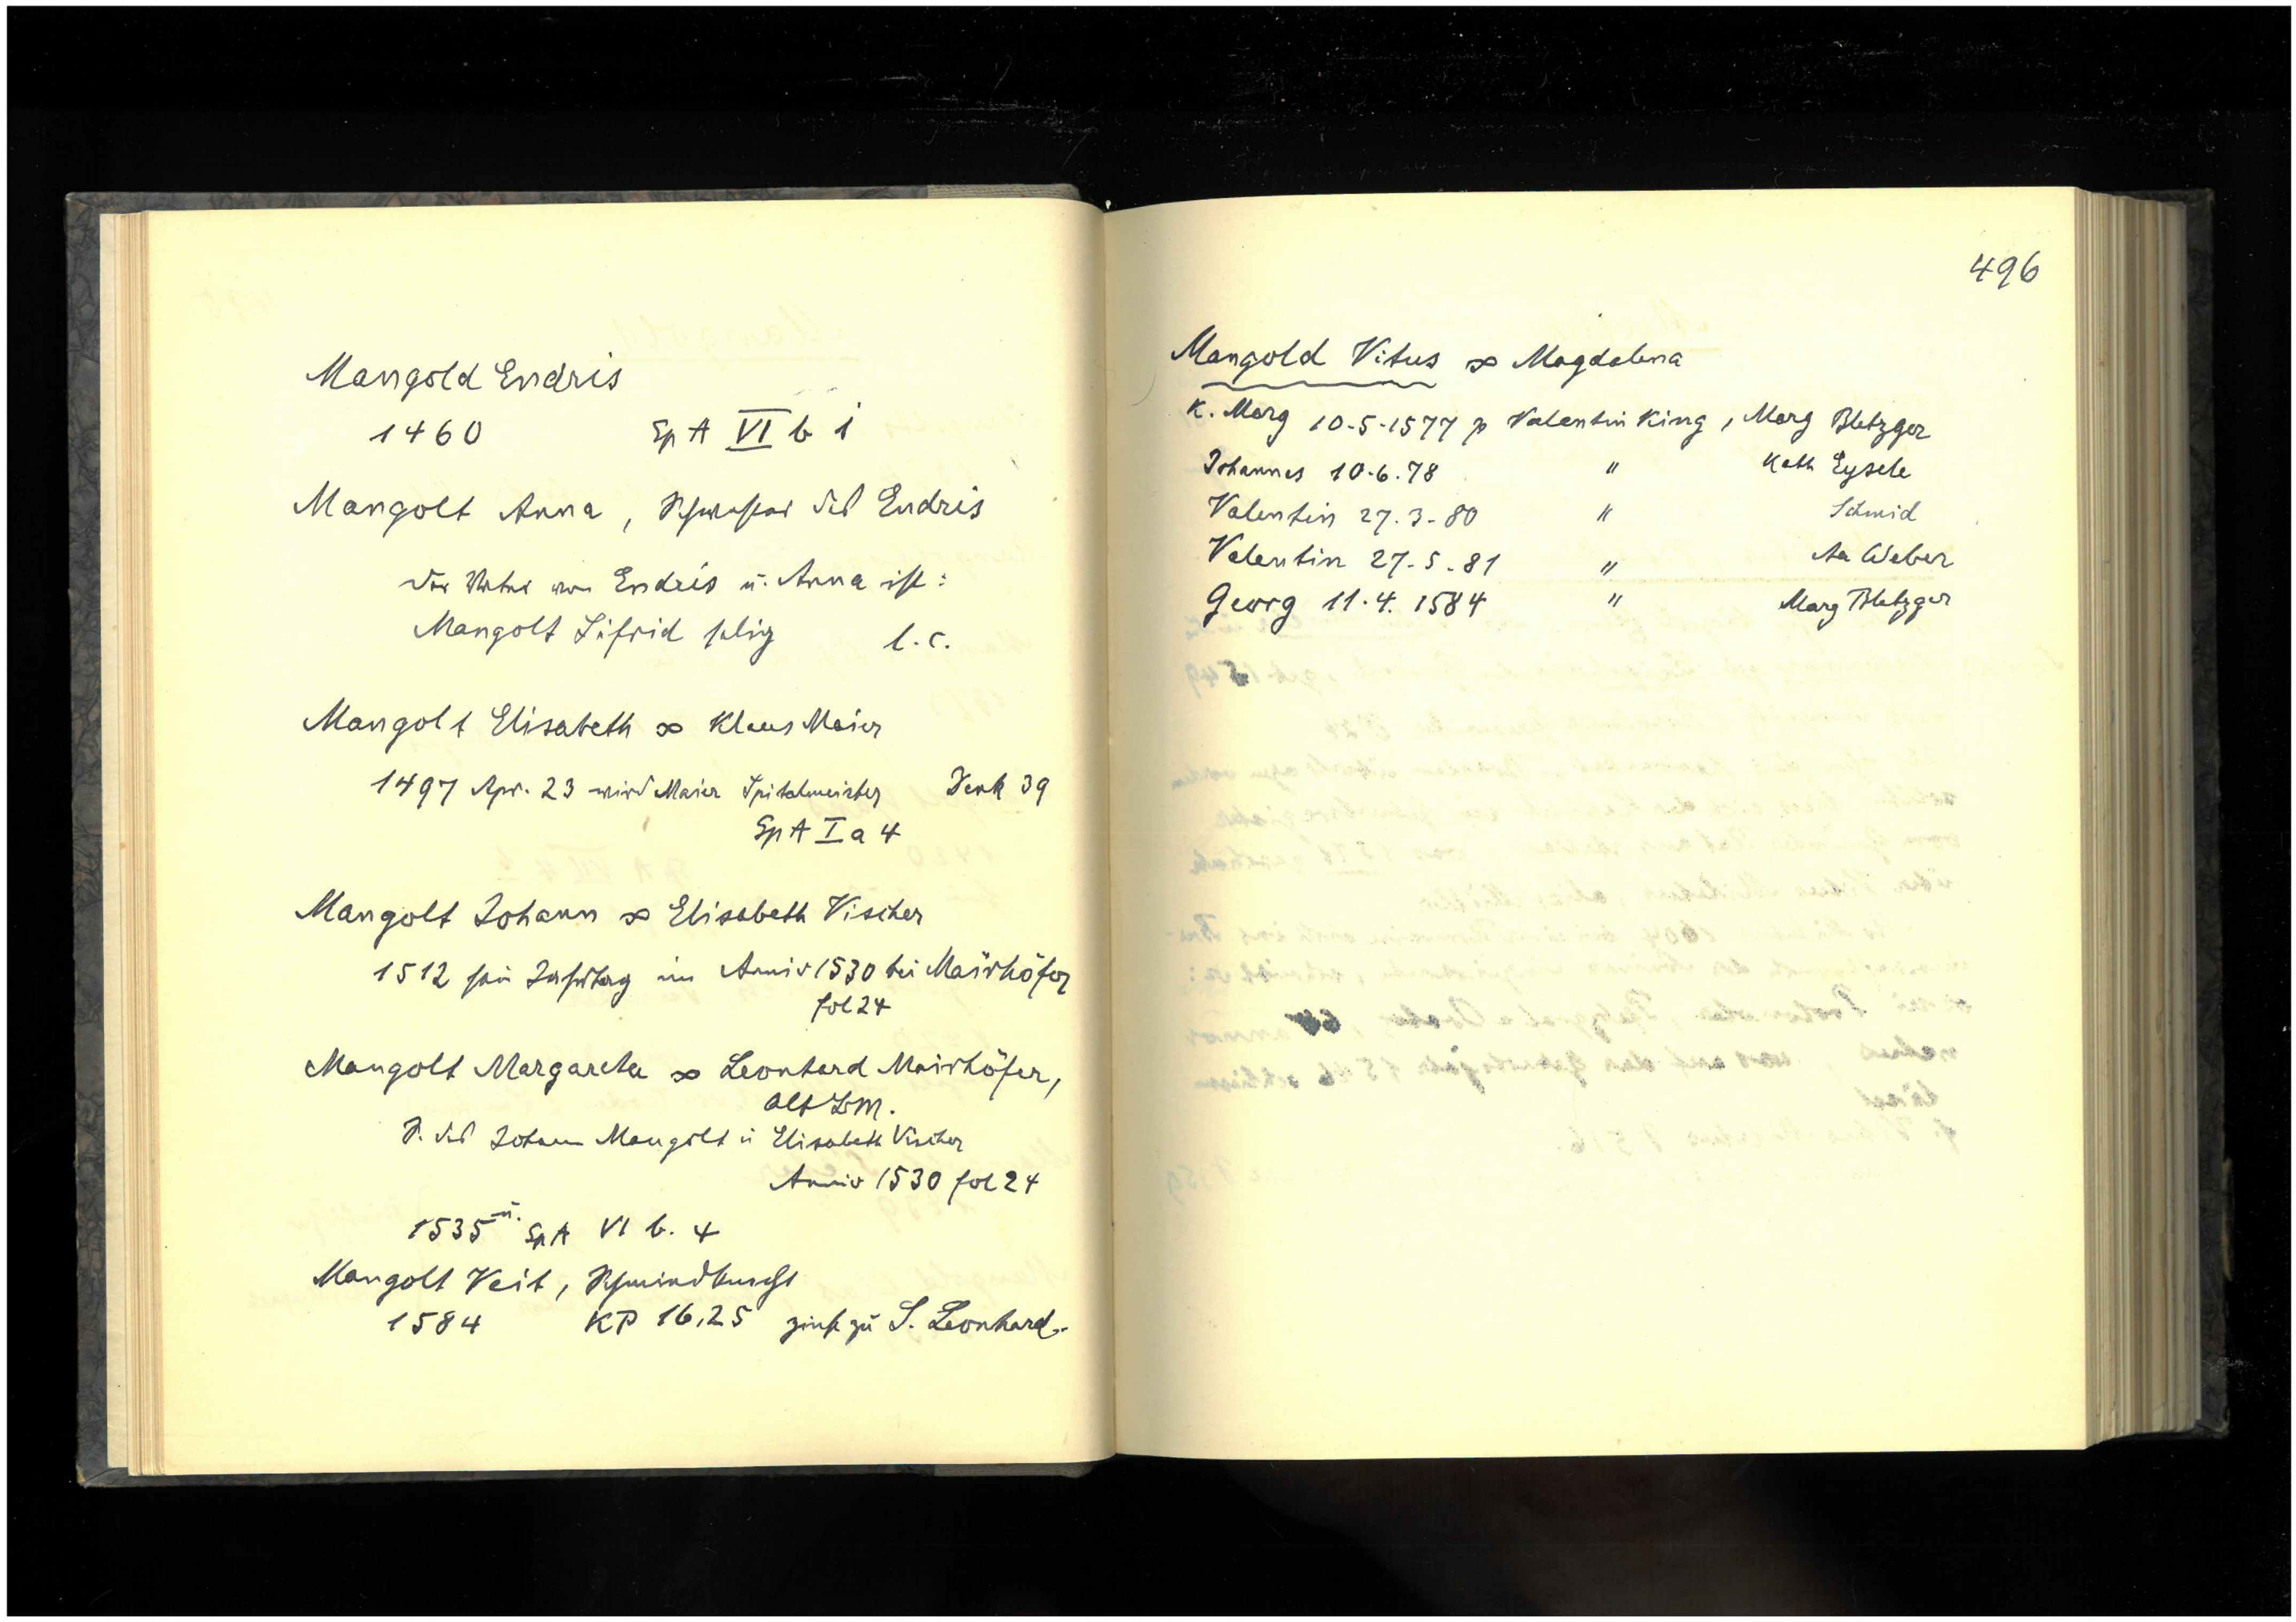 Mangold Endris
1460 Sp A VI b 1
Mangolt Anna, Schwester des Endris
Der Vater von Endris u. Anna ist:
Mangolt Sifrid selig l.c.
Mangolt Elisabeth ∞ Klaus Maier
1497 Apr. 23 wird Maier Spitalmeister Denk 39
Sp A I a 4
Mangolt Johann ∞ Elisabeth Vischer
1512 sein Jahrtag im Anniv 1530 bei Mairhöfer
fol 24
Mangolt Margareta ∞ Leonhard Mairhöfer,
alt
T. des Johann Mangolt u Elisabeth Vischer
Anniv 1530 fol 24
1535 u. Sp A VI b. 4
Mangolt Veit,
1584 KP 16,25 zinst zu S. Leonhard.
496
Mangold Vitus ∞ Magdalena
K. Marg 10.5.1577 p Valentin King, Marg Bletzger
Johannes 10.6.78 " Kath Eysele
Valentin 27.3.80 " Schmid
Valentin 27.5.81 " Aa Weber
Georg 11.4.1584 " Marg Bletzger